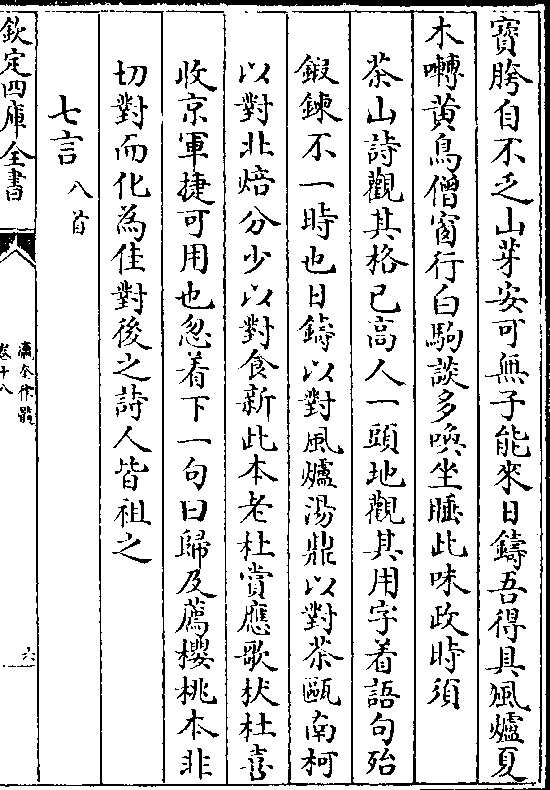 寳胯自不乏山芽安可無子能來日鑄吾得具風爐夏
木囀黄鳥僧窗行白駒談多喚坐睡此味政時須
茶山詩觀其格已高人一頭地觀其用字着語句殆
鍜鍊不一時也日鑄以對風爐湯鼎以對茶甌南柯
以對北焙分少以對食新此本老杜賞應歌杕杜喜
收京軍捷可用也忽着下一句曰歸及薦櫻桃本非
切對而化為佳對後之詩人皆祖之
七言八首
欽定四庫全書
瀛奎律髓
卷十八
六